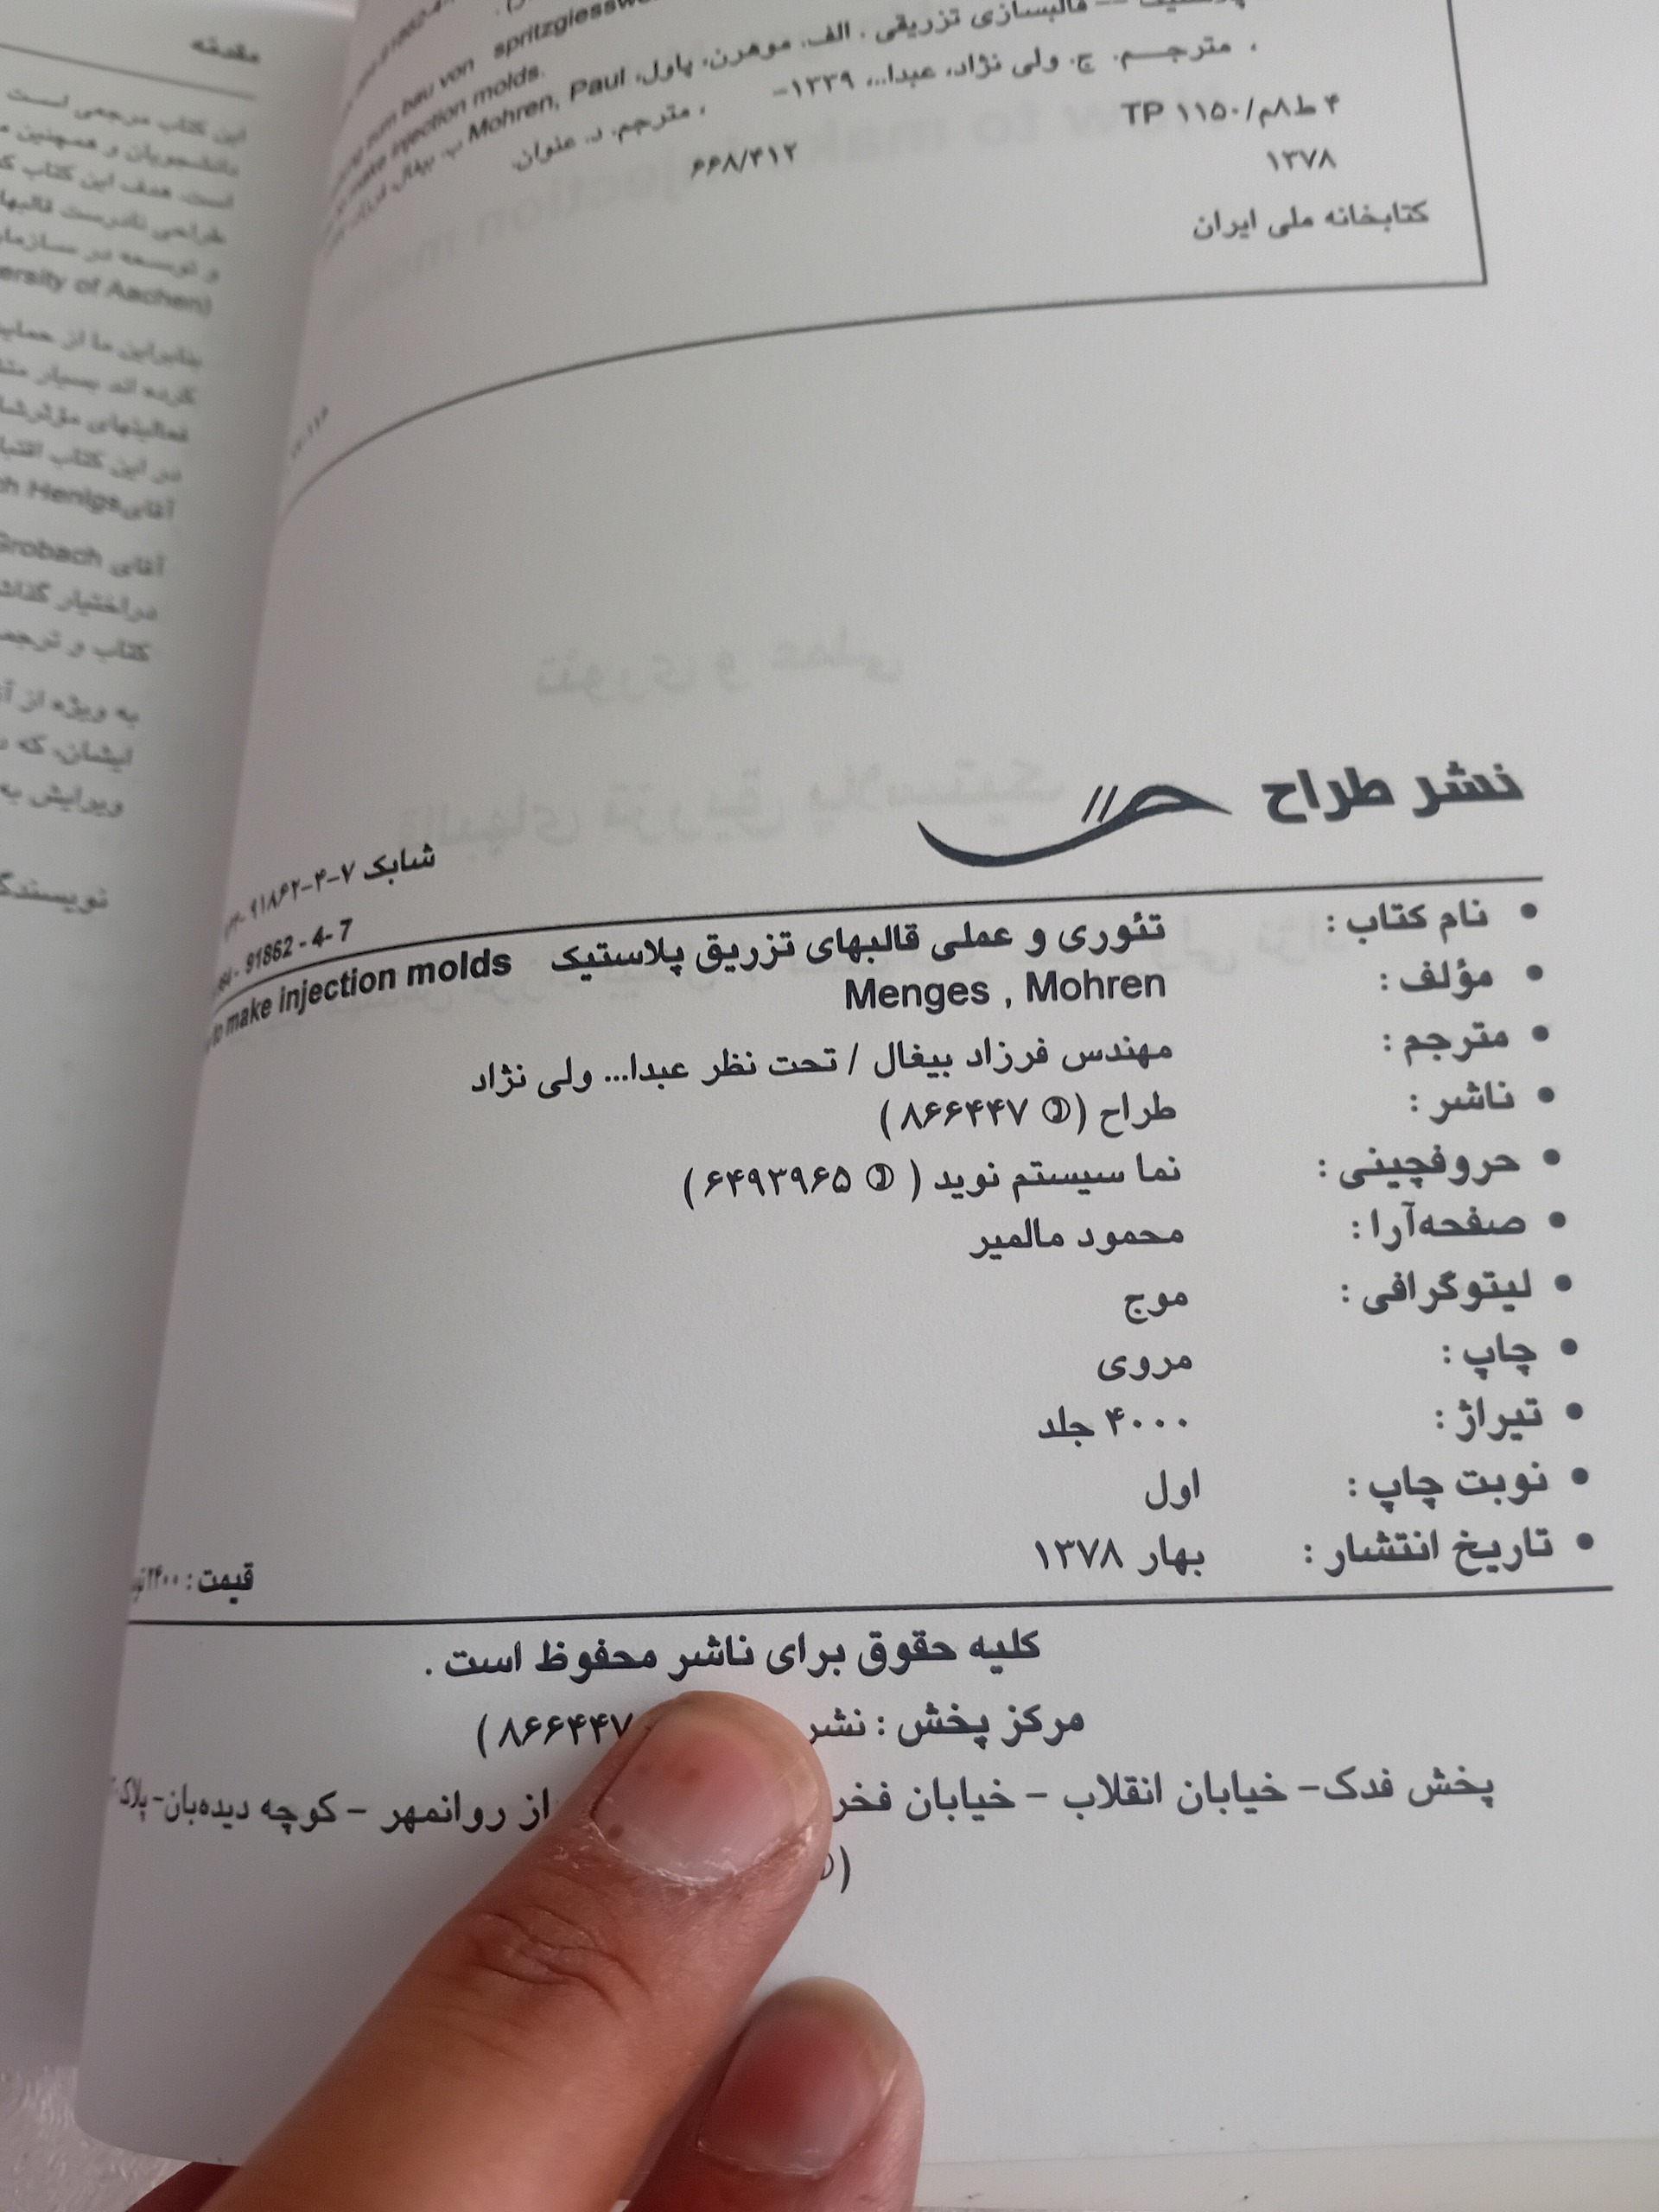 spritzgiessw
bau von
make injection molds.
قالبسازی تزریقی. الف. موهرن، پاول، Mohren, Paul ب. بیغال،
، مترجم. ج. ولی نژاد، عبدا...، ۱۳۳۹-
، مترجم. د. عنوان.
۴ ط۸م/۱۱۵۰ TP
۶۶۸/۴۱۲
۱۳۷۸
کتابخانه ملی ایران
نشر طراح
شابک ۷-۴-۹۱۸۶۲
91862 - 4- 7
• نام کتاب : تئوری و عملی قالبهای تزریق پلاستیک to make injection molds
• مؤلف : Menges , Mohren
• مترجم : مهندس فرزاد بیغال / تحت نظر عبدا... ولی نژاد
• ناشر : طراح (✆ ۸۶۶۴۴۷ )
• حروفچینی : نما سیستم نوید ( ✆ ۶۴۹۳۹۶۵ )
• صفحه‌آرا : محمود مالمیر
• لیتوگرافی : موج
• چاپ : مروی
• تیراژ : ۴۰۰۰ جلد
• نوبت چاپ : اول
• تاریخ انتشار : بهار ۱۳۷۸
قیمت : ۲۴۰۰
کلیه حقوق برای ناشر محفوظ است .
مرکز پخش : نشر ۸۶۶۴۴۷ )
پخش فدک- خیابان انقلاب - خیابان فخر از روانمهر - کوچه دیده‌بان- پلاک
مقدمه
این کتاب مرجعی است
دانشجویان و همچنین
است. هدف این کتاب
طراحی نادرست قالبها
و توسعه در سازما
ersity of Aachen)
بنابراین ما از حمای
کرده اند بسیار
فعالیتهای مؤثرشا
در این کتاب
آقای Henigs
آقای Grobach
دراختیار
کتاب و ترجم
به ویژه از
ایشان، که
ویرایش به
نویسندگ